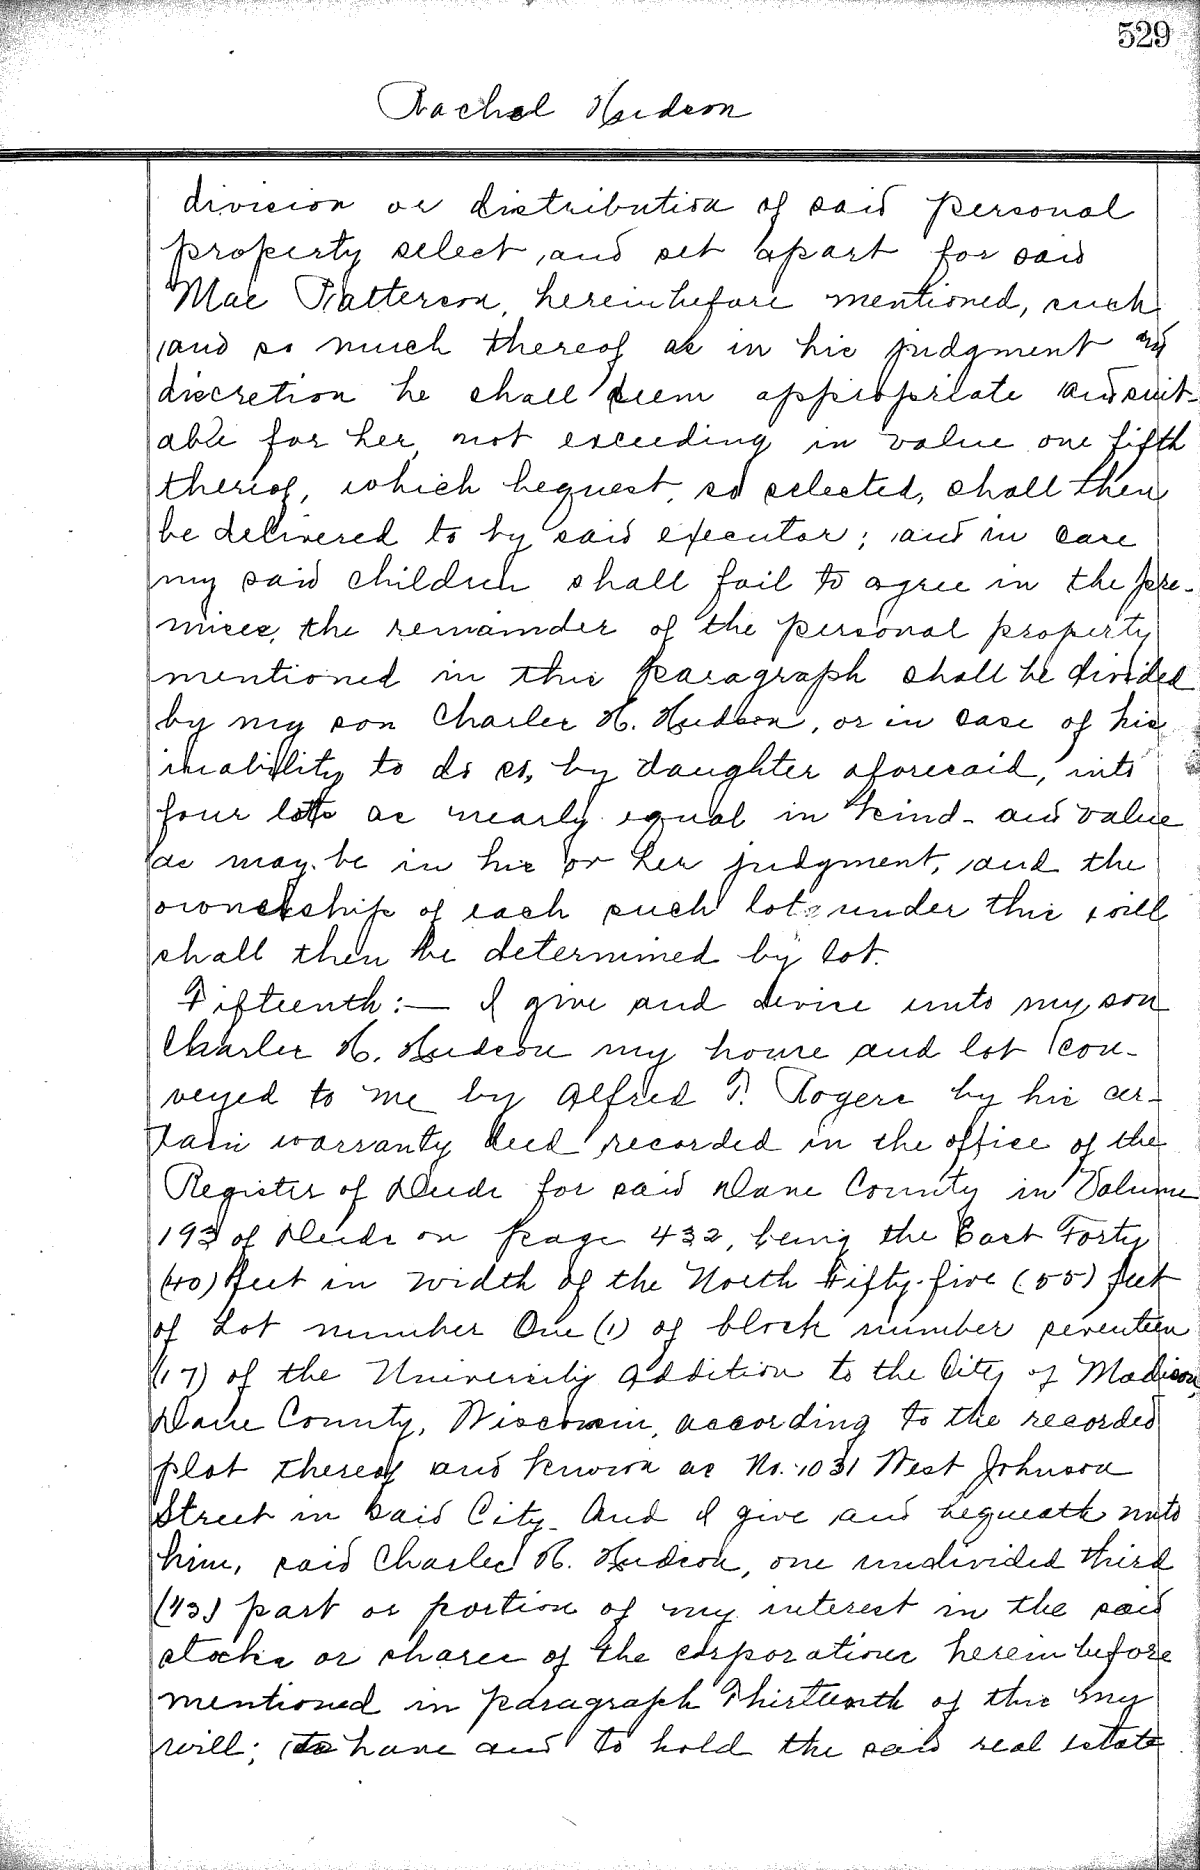 529
Rachel Hudson
division or distribution of said personal
property select, and set apart for said
Mae Patterson, hereinbefore mentioned, such
and so much thereof as in his judgment and
discretion he shall deem appropriate and suit-
able for her, not exceeding in value one fifth
thereof, which bequest, so selected, shall then
be delivered to by said executor; and in case
my said children shall fail to agree in the pre-
mises, the remainder of the personal property
mentioned in this paragraph shall be divided
by my son Charles H. Hudson, or in case of his
inability to do so, by daughter aforesaid, into
four lots as nearly equal in kind and value
as may be in his or her judgment, and the
ownership of each such lot under this will
shall then be determined by lot.
Fifteenth:— I give and devise unto my son
Charles H. Hudson my house and lot (con-
veyed to me by Alfred T. Rogers by his cer-
tain warranty deed recorded in the office of the
Register of Deeds for said Dane County in Volume
193 of Deeds on page 432, being the East Forty
(40) feet in width of the North Fifty-five (55) feet
of Lot number One (1) of block number seventeen
(17) of the University Addition to the City of Madison,
Dane County, Wisconsin, according to the recorded
plat thereof and known as No. 1031 West Johnson
Street in said City. And I give and bequeath unto
him, said Charles H. Hudson, one undivided third
(1/3) part or portion of my interest in the said
stocks or shares of the corporations hereinbefore
mentioned in paragraph Thirteenth of this my
will; to have and to hold the said real estate